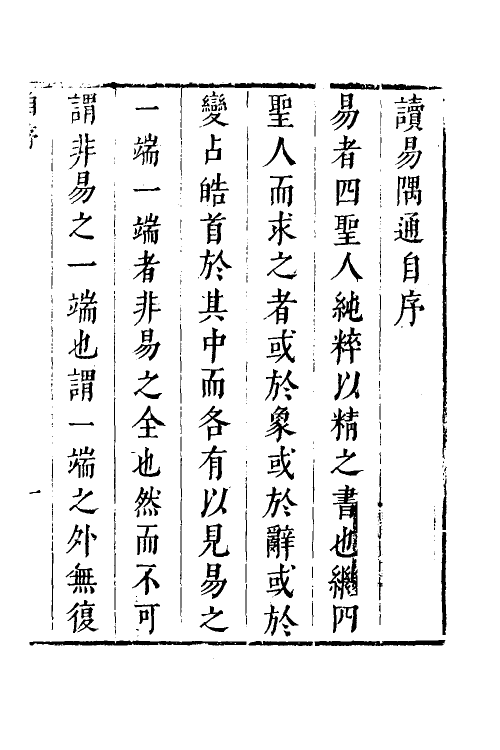 讀易隅通自序
易者四聖人純粹以精之書也繼四
聖人而求之者或於象或於辭或於
變占皓首於其中而各有以見易之
一端一端者非易之全也然而不可
謂非易之一端也謂一端之外無復
自序
一